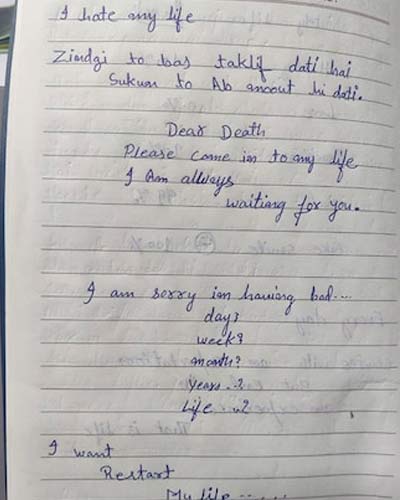 I hate my life
Zindgi to bas taklif dati hai
Sukun to Ab amout hi dati.
Dear Death
Please come in to my life
I Am allways
waiting for you.
I am sorry im having bad...
day?
week?
month?
Years..?
Life..?
I want
Restart
My life